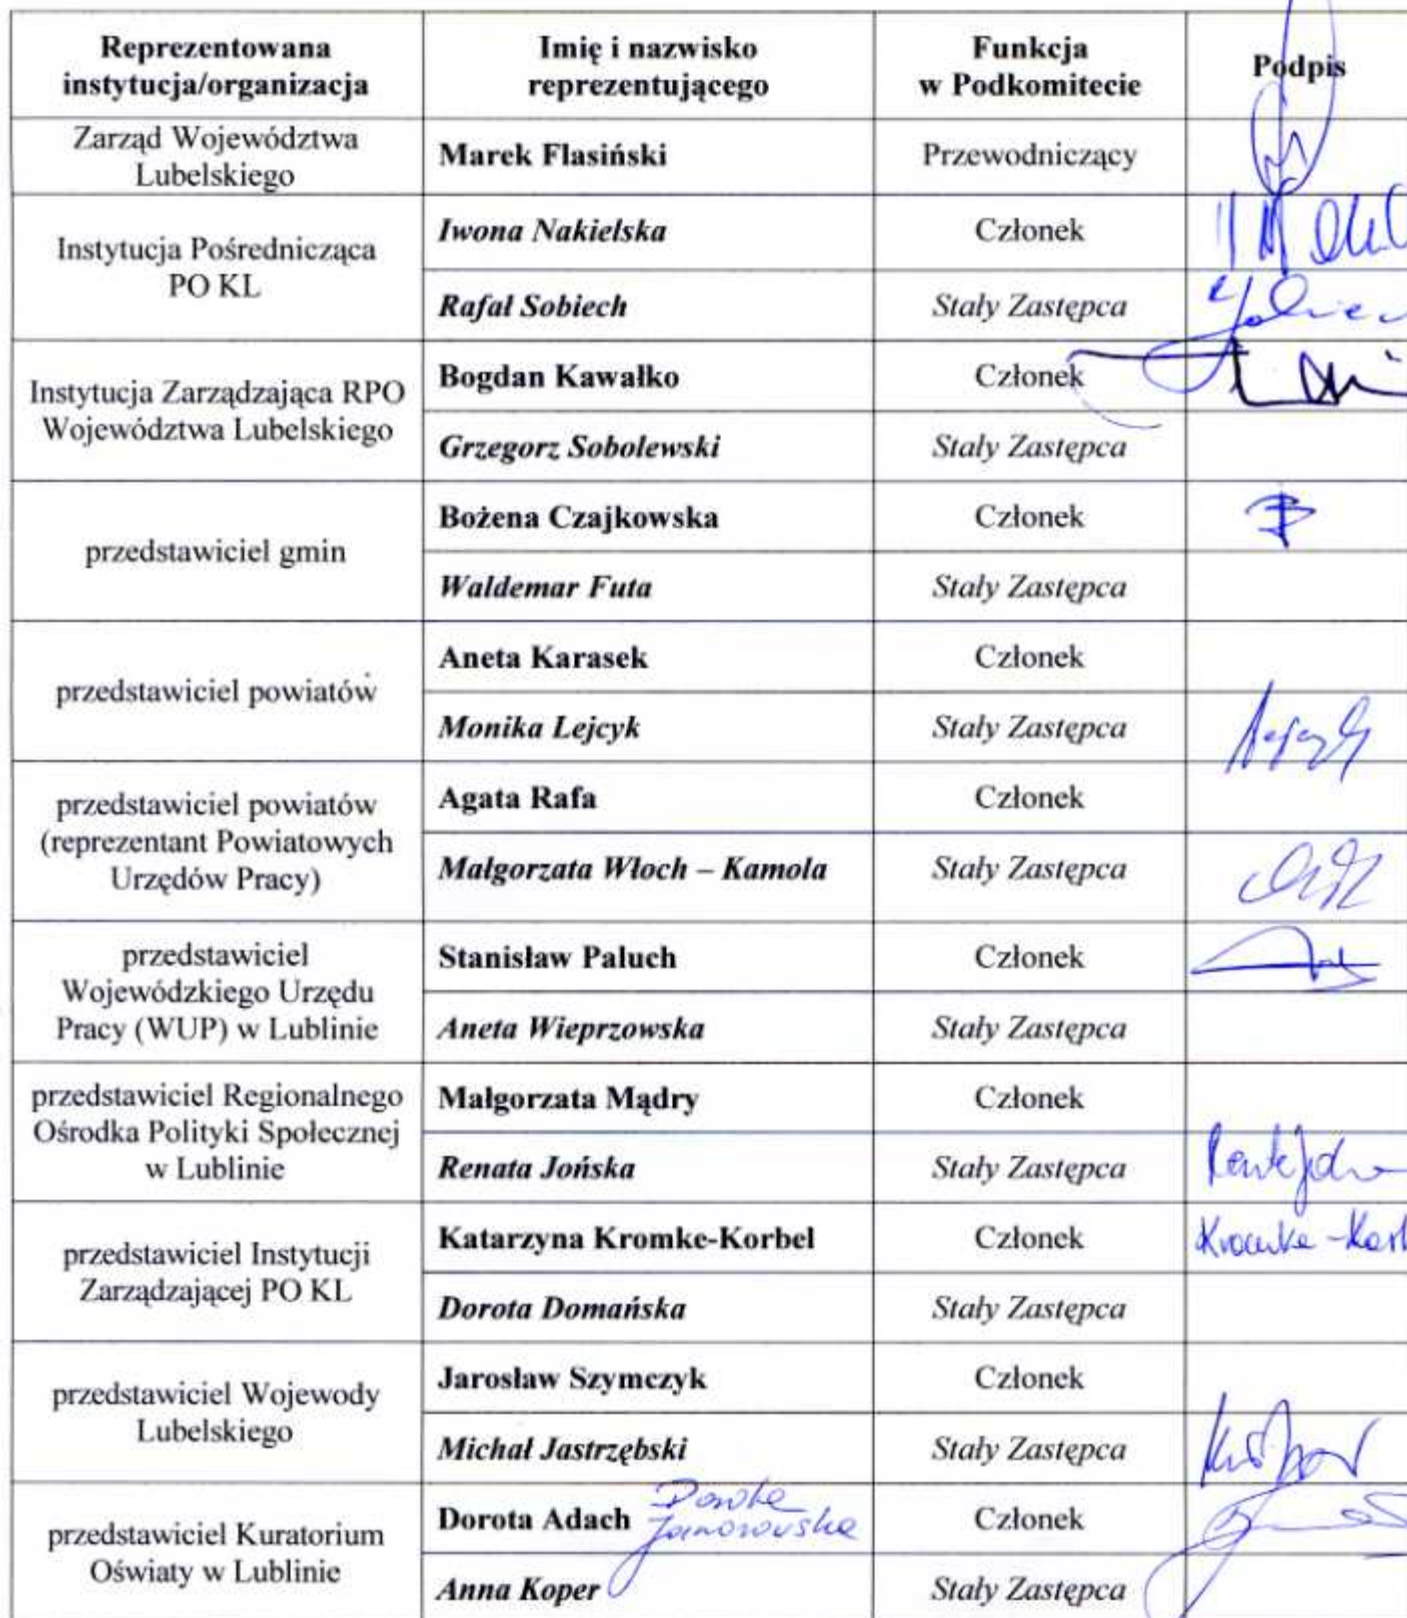 Reprezentowana
instytucja/organizacja
Imię i nazwisko
reprezentującego
Funkcja
w Podkomitecie
Podpis
Zarząd Województwa
Lubelskiego
Marek Flasiński
Przewodniczący
Instytucja Pośrednicząca
PO KL
Iwona Nakielska
Członek
Rafał Sobiech
Stały Zastępca
Instytucja Zarządzająca RPO
Województwa Lubelskiego
Bogdan Kawałko
Członek
Grzegorz Sobolewski
Stały Zastępca
przedstawiciel gmin
Bożena Czajkowska
Członek
Waldemar Futa
Stały Zastępca
przedstawiciel powiatów
Aneta Karasek
Członek
Monika Lejcyk
Stały Zastępca
przedstawiciel powiatów
(reprezentant Powiatowych
Urzędów Pracy)
Agata Rafa
Członek
Małgorzata Włoch – Kamola
Stały Zastępca
przedstawiciel
Wojewódzkiego Urzędu
Pracy (WUP) w Lublinie
Stanisław Paluch
Członek
Aneta Wieprzowska
Stały Zastępca
przedstawiciel Regionalnego
Ośrodka Polityki Społecznej
w Lublinie
Małgorzata Mądry
Członek
Renata Jońska
Stały Zastępca
przedstawiciel Instytucji
Zarządzającej PO KL
Katarzyna Kromke-Korbel
Członek
Dorota Domańska
Stały Zastępca
przedstawiciel Wojewody
Lubelskiego
Jarosław Szymczyk
Członek
Michał Jastrzębski
Stały Zastępca
przedstawiciel Kuratorium
Oświaty w Lublinie
Dorota Adach
Członek
Anna Koper
Stały Zastępca